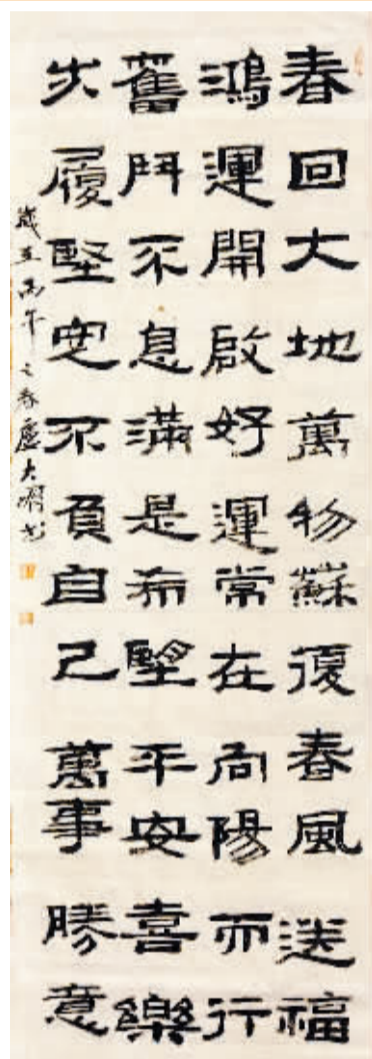 春回大地萬物蘇復春風送福
鴻運開啟好運常在向陽而行
奮鬥不息滿是希朢平安喜樂
步履堅定不負自己萬事勝意
歲在丙午之春盧大书